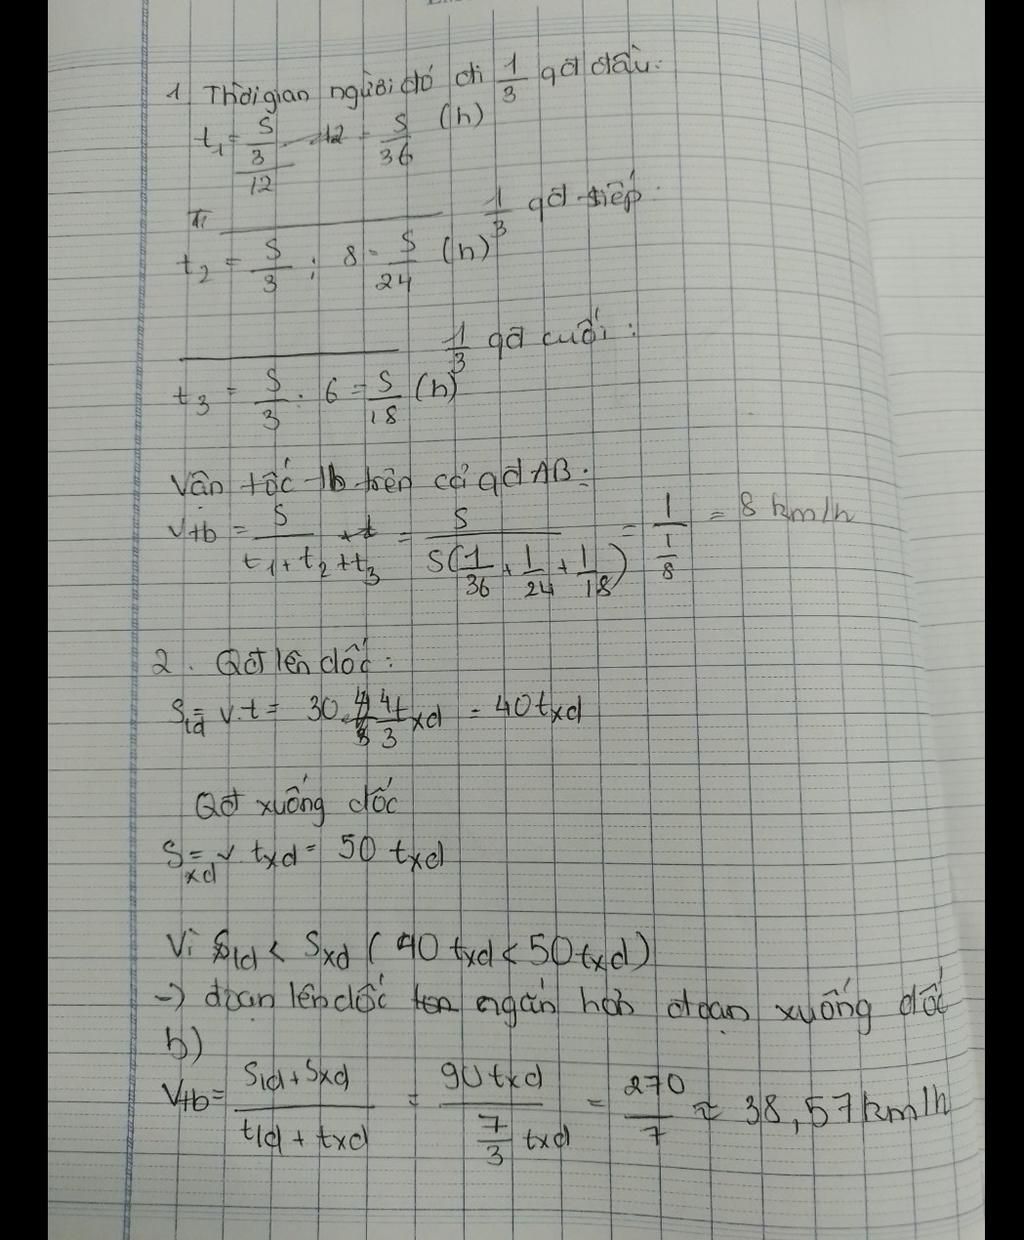 1 Thời gian người đó đi 1/3 qđ đầu:
t1 = S/3/12 = S/36 (h)
1/3 qđ tiếp.
t2 = S/3 : 8 = S/24 (h)
1/3 qđ cuối:
t3 = S/3 : 6 = S/18 (h)
Vận tốc tb trên cả qđ AB:
Vtb = S/(t1 + t2 + t3) = S/(S(1/36 + 1/24 + 1/18)) = 1/(1/8) = 8 km/h
2. Qđ lên dốc:
Sld = v.t = 30.4/3 txd = 40txd
Qđ xuống dốc
Sxd = v txd = 50 txd
Vì Sld < Sxd (40 txd < 50 txd)
-> đoạn lên dốc ngắn hơn đoạn xuống dốc
b)
Vtb = (Sld + Sxd)/(tld + txd) = 90txd/(7/3 txd) = 270/7 ≈ 38,57 km/h